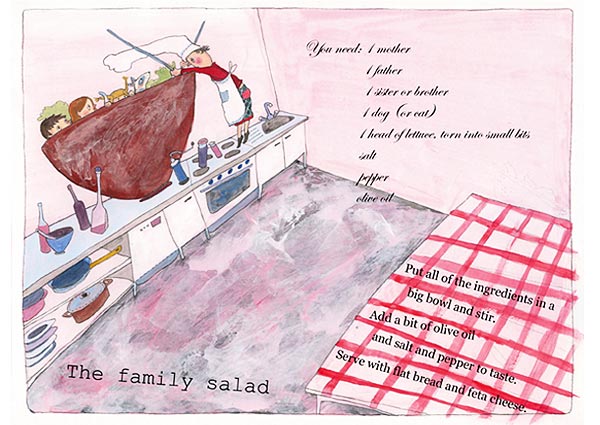 You need: 1 mother
1 father
1 sister or brother
1 dog (or cat)
1 head of lettuce, torn into small bits
salt
pepper
olive oil
Put all of the ingredients in a
big bowl and stir.
Add a bit of olive oil
and salt and pepper to taste.
Serve with flat bread and feta cheese.
The family salad